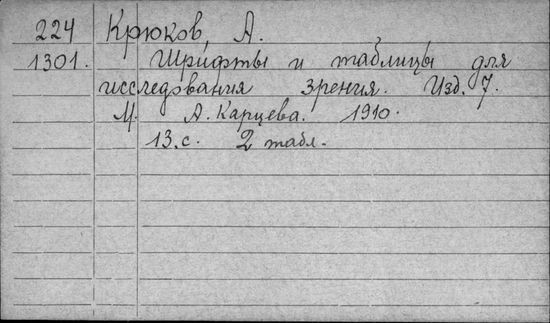 224 Крюков, А.
1301. Шрифты и таблицы для
исследования зрения. Изд. 7.
М. А. Карцева. 1910.
13.с. 2 табл.